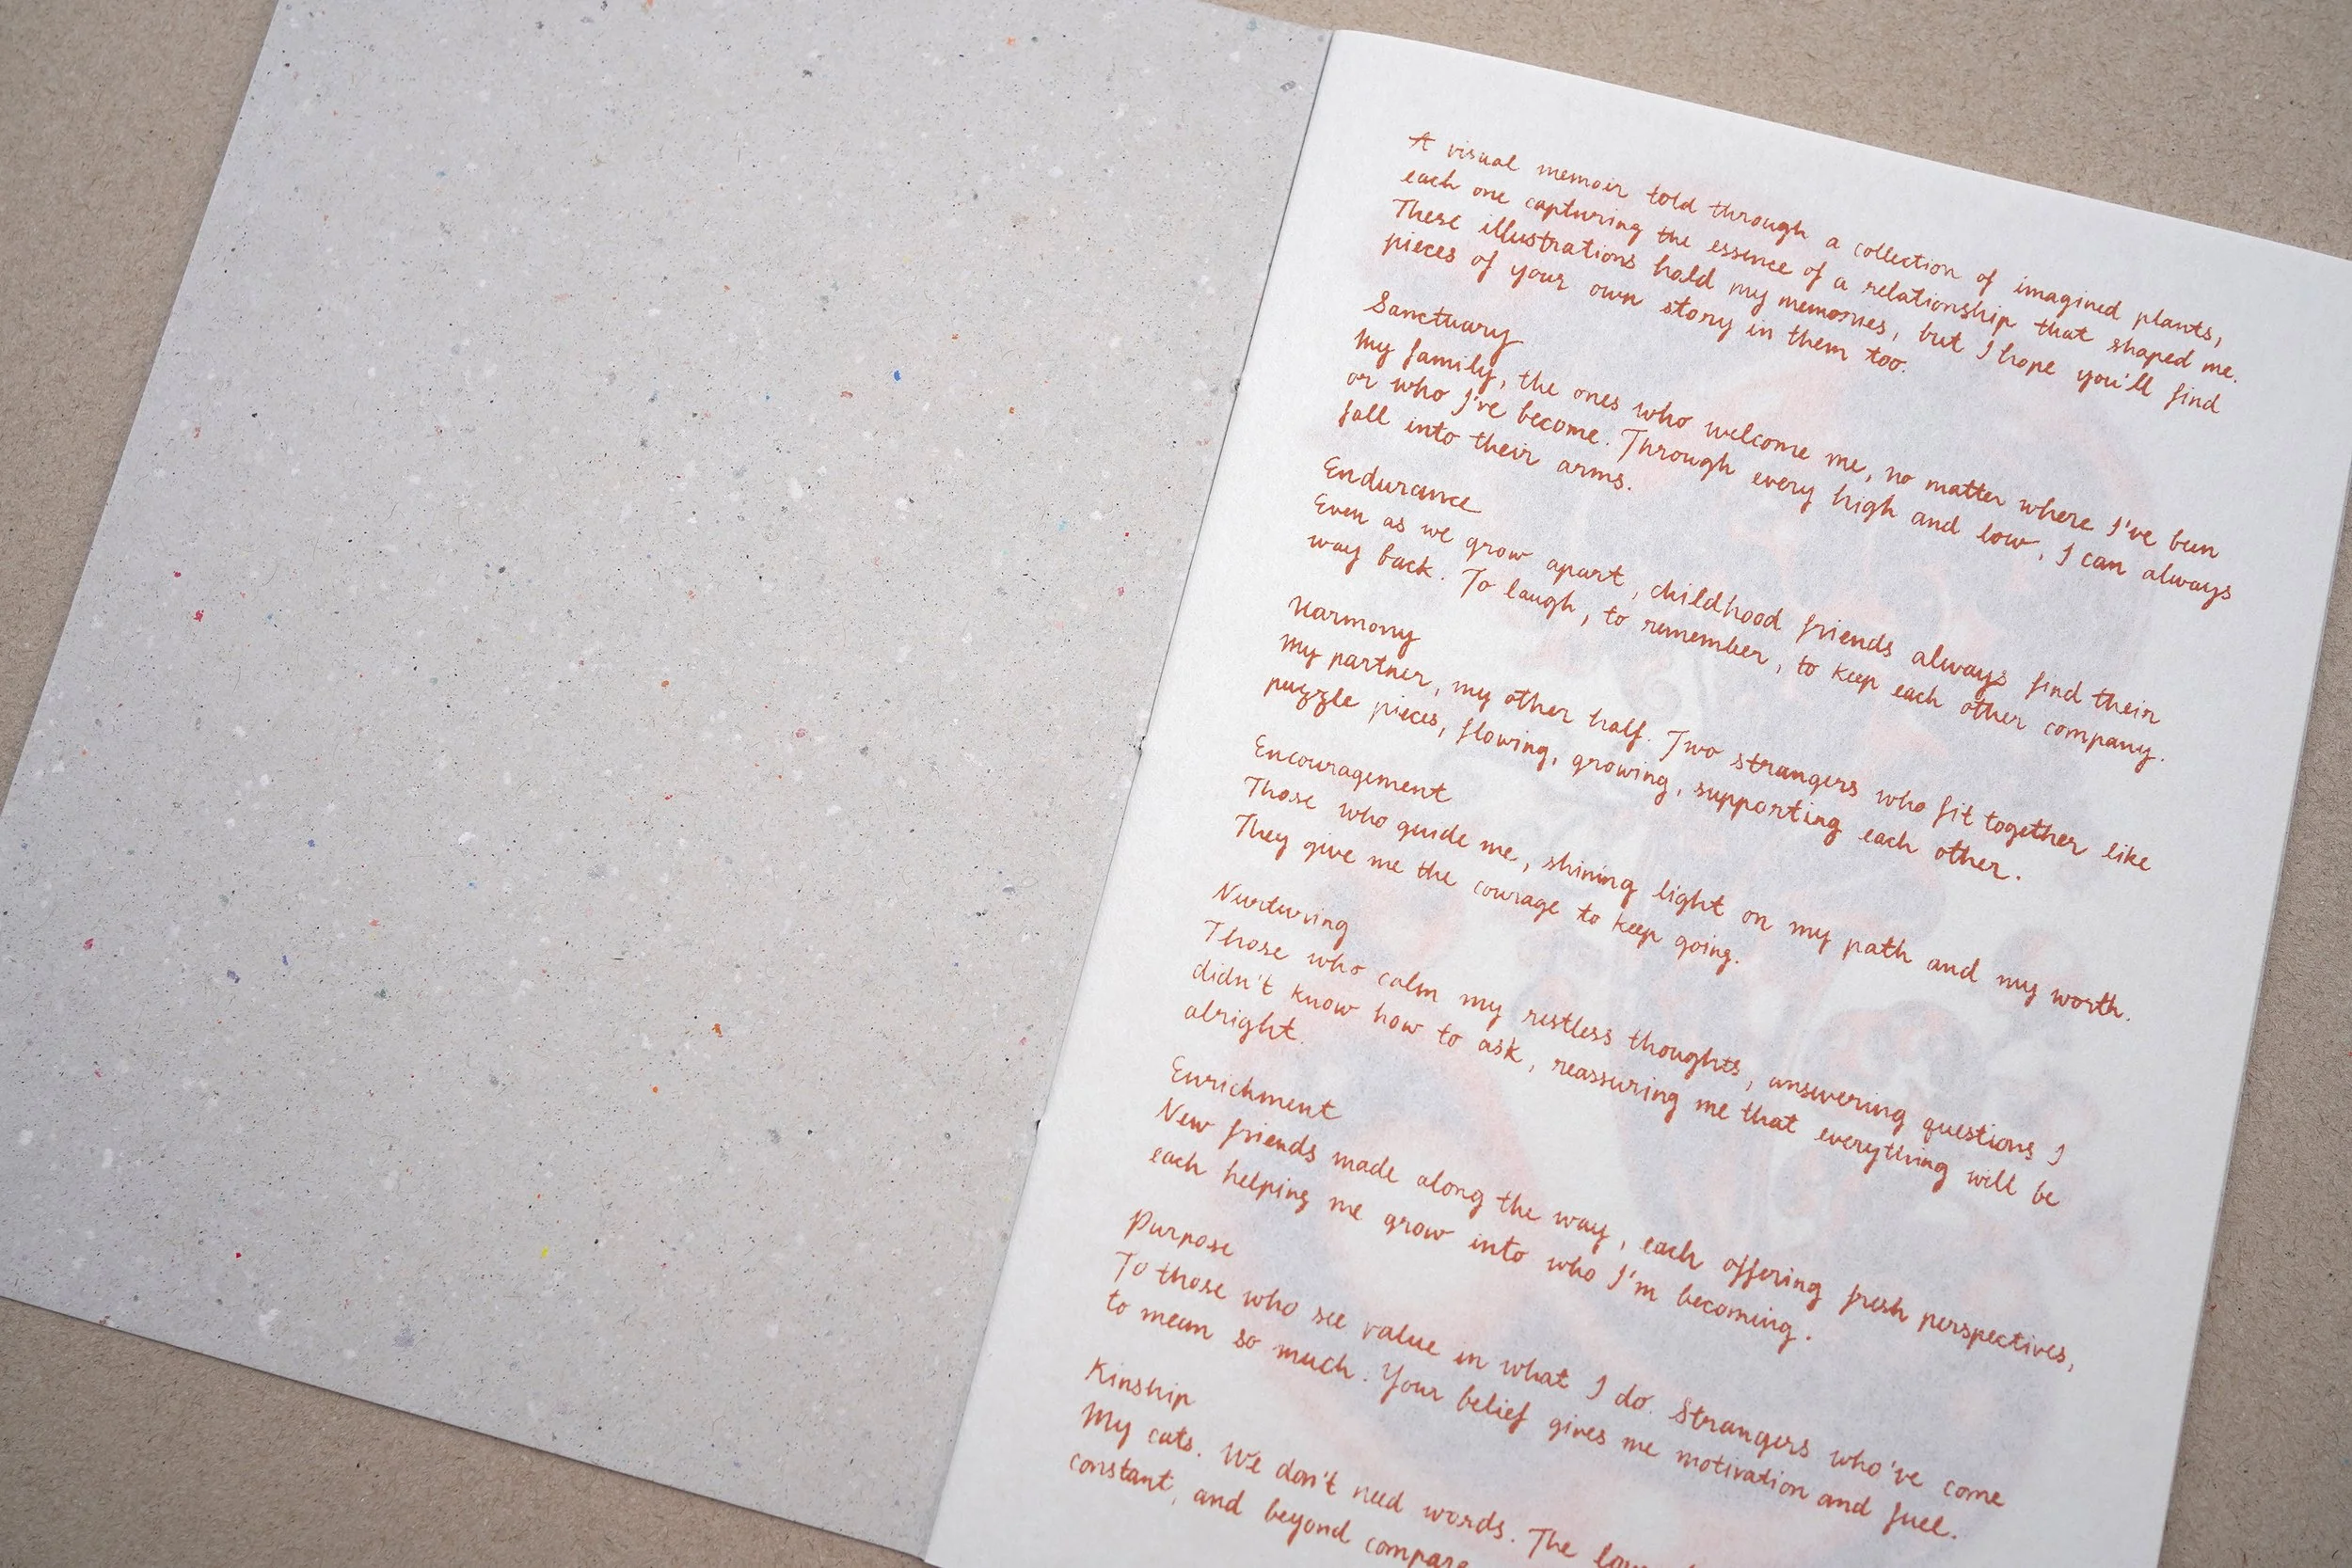 A visual memoir told through a collection of imagined plants,
each one capturing the essence of a relationship that shaped me.
These illustrations hold my memories, but I hope you'll find
pieces of your own story in them too.
Sanctuary
My family, the ones who welcome me, no matter where I've been
or who I've become. Through every high and low, I can always
fall into their arms.
Endurance
Even as we grow apart, childhood friends always find their
way back. To laugh, to remember, to keep each other company.
Harmony
My partner, my other half. Two strangers who fit together like
puzzle pieces, flowing, growing, supporting each other.
Encouragement
Those who guide me, shining light on my path and my worth.
They give me the courage to keep going.
Nurturing
Those who calm my restless thoughts, answering questions I
didn't know how to ask, reassuring me that everything will be
alright.
Enrichment
New friends made along the way, each offering fresh perspectives,
each helping me grow into who I'm becoming.
Purpose
To those who see value in what I do. Strangers who've come
to mean so much. Your belief gives me motivation and fuel.
Kinship
My cats. We don't need words. The
constant, and beyond compare